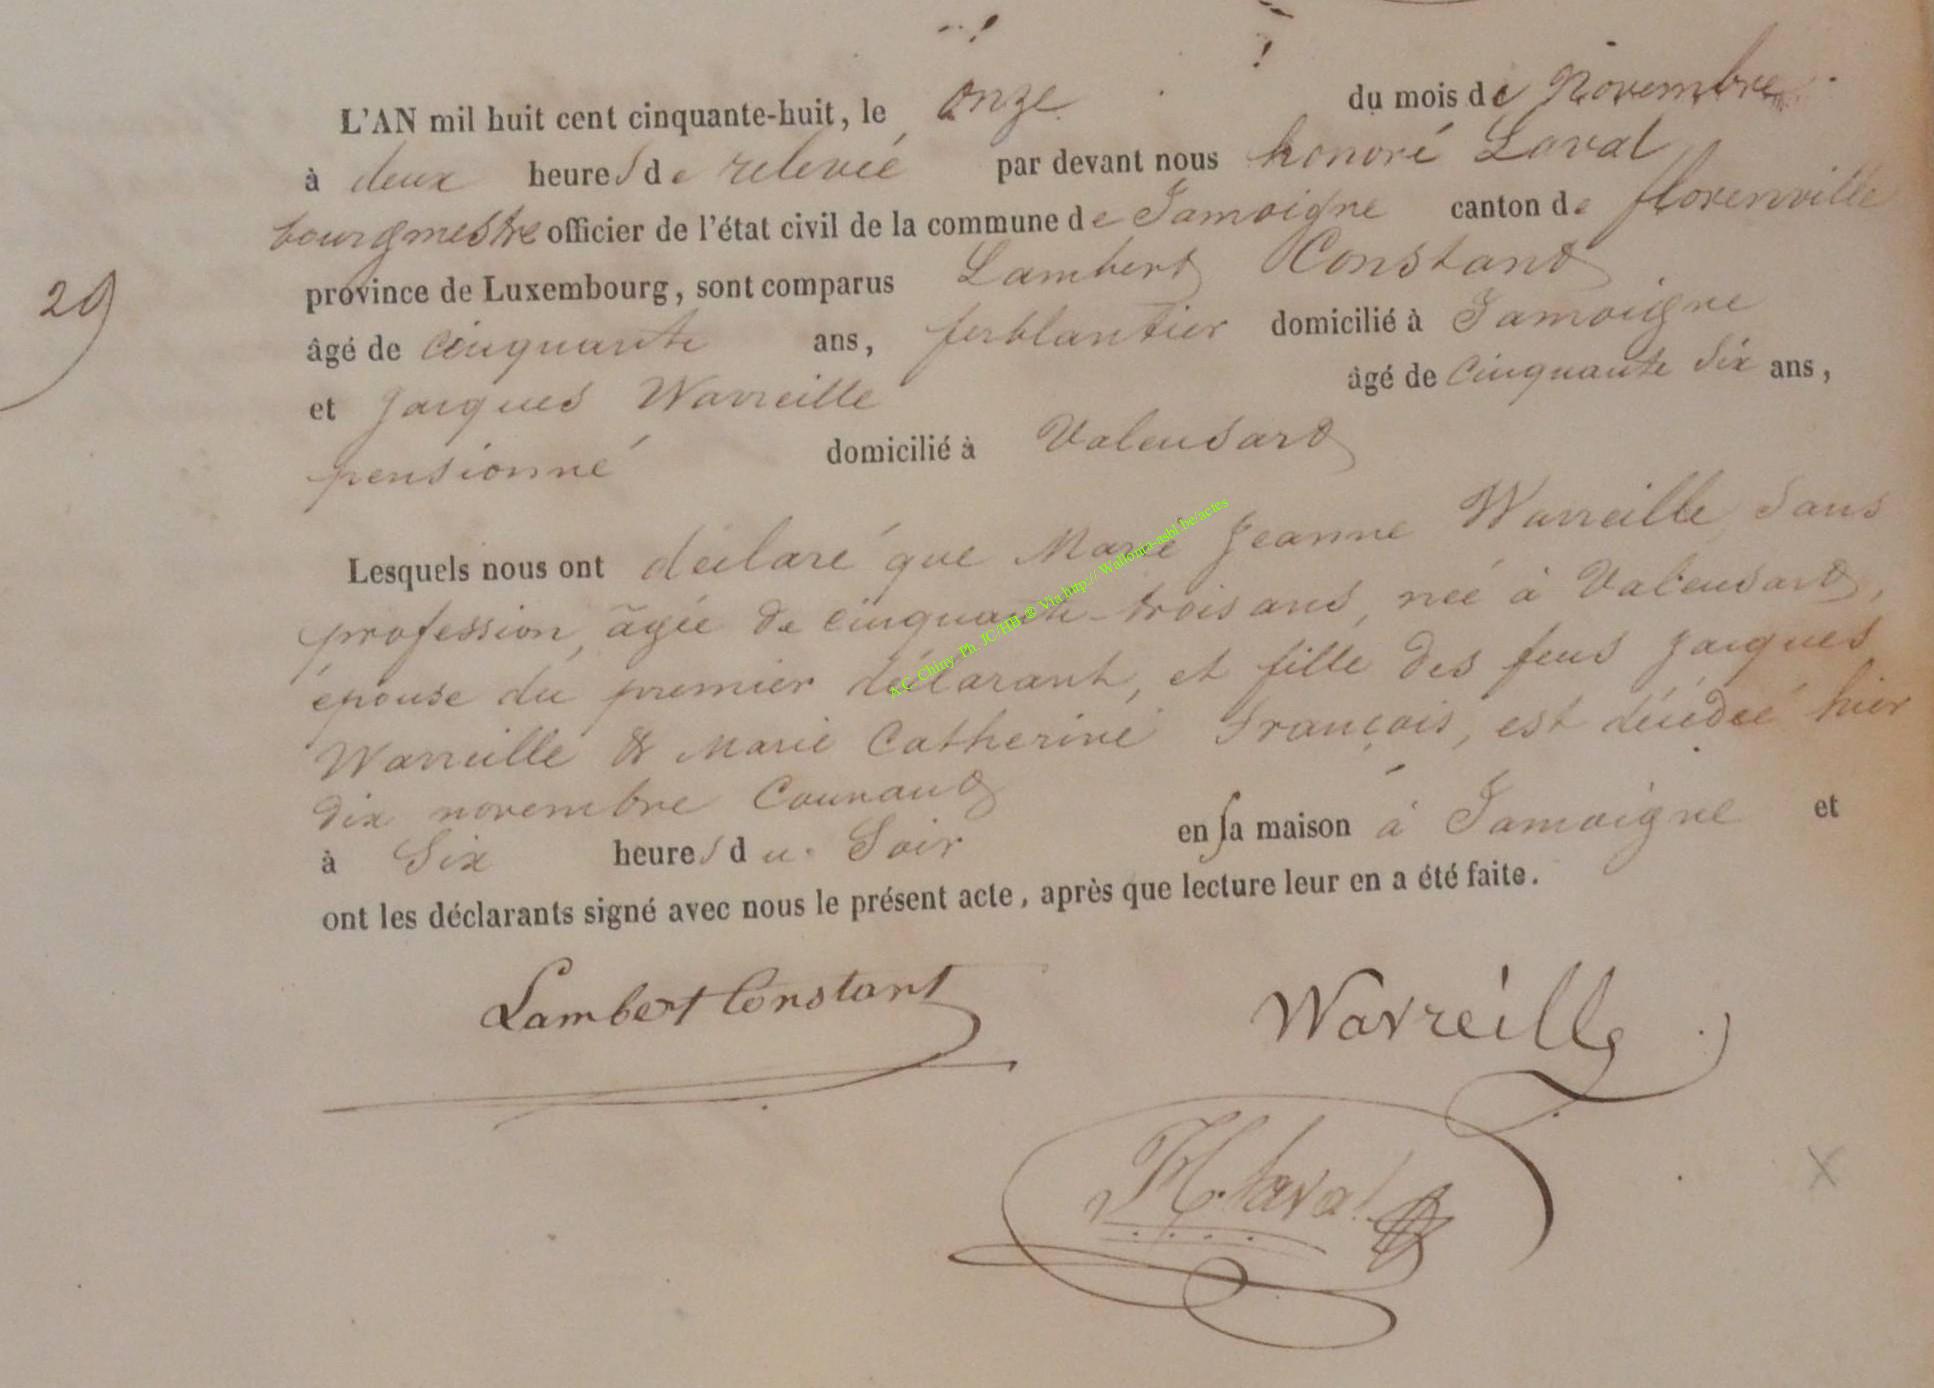 L'AN mil huit cent cinquante-huit, le onze du mois de Novembre
à deux heures de relevée par devant nous honoré Laval
bourgmestre officier de l'état civil de la commune de Jamoigne canton de florenville
province de Luxembourg, sont comparus Lambert Constant
âgé de cinquante ans, ferblantier domicilié à Jamoigne
et Jacques Warreille âgé de cinquante six ans,
pensionné domicilié à Valensart
29
Lesquels nous ont déclaré que Marie Jeanne Warreille sans
profession, âgée de cinquante-trois ans, née à Valensart,
épouse du premier déclarant, et fille des feus Jacques
Warreille & Marie Catherine François, est décédée hier
dix novembre Courant
à Six heures du Soir en sa maison à Jamoigne et
ont les déclarants signé avec nous le présent acte, après que lecture leur en a été faite.
Lambert Constant Warreille
H Laval
A.C. Chiny_Ph. JC/HB ® Via http:// Wallonia-asbl.be/actes